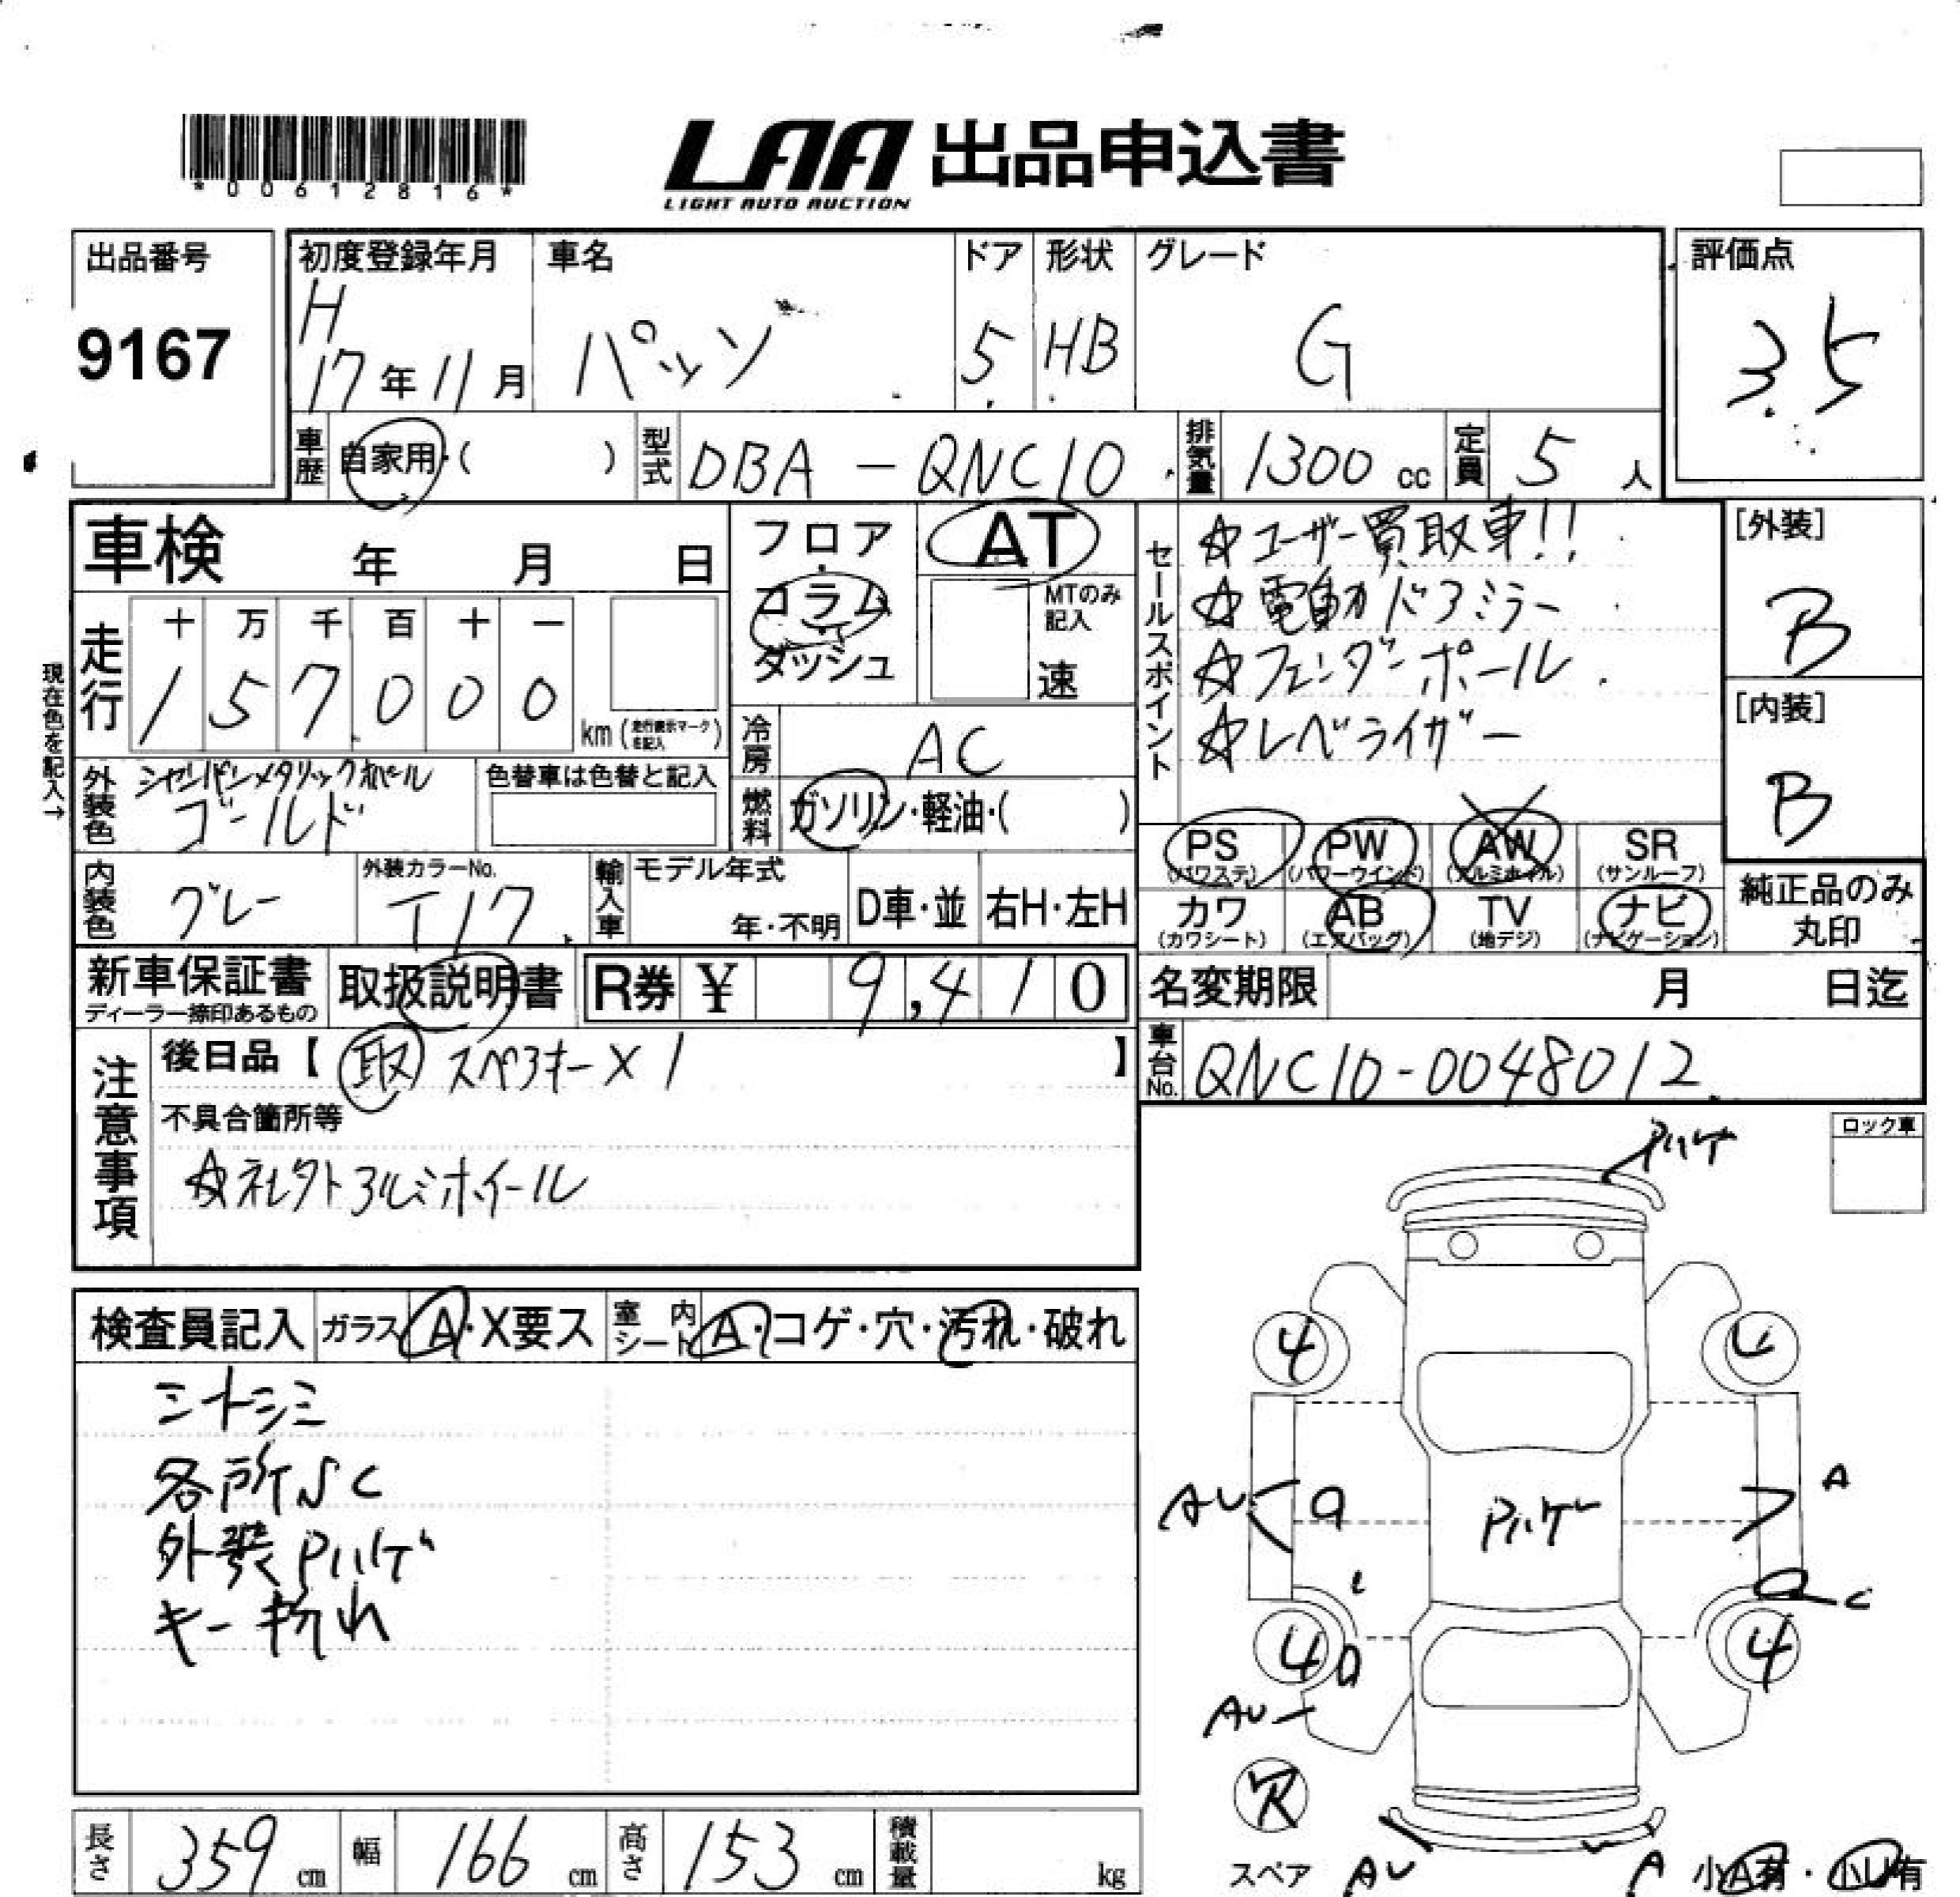 *00612816*
LAA 出品申込書
LIGHT AUTO AUCTION
出品番号
9167
初度登録年月
H
17年11月
車名
パッソ
ドア
5
形状
HB
グレード
G
評価点
3.5
車歴
自家用・( )
型式
DBA-QNC10
排気量
1300cc
定員
5人
車検 年 月 日
フロア
・
コラム
・
ダッシュ
AT
MTのみ記入
速
セールスポイント
☆ユーザー買取車!!
☆電動ドアミラー
☆フェンダーポール
☆レベライザー
[外装]
B
[内装]
B
現在色を記入→
走行
十 万 千 百 十 一
1 5 7 0 0 0
km(走行表示マークを記入)
冷房
AC
燃料
ガソリン・軽油・( )
外装色
シャンパンメタリックオパール
ゴールド
色替車は色替と記入
内装色
グレー
外装カラーNo.
T17
輸入車
モデル年式
年・不明
D車・並
右H・左H
PS (パワステ)
PW (パワーウインド)
AW (アルミホイル)
SR (サンルーフ)
カワ (カワシート)
AB (エアバッグ)
TV (地デジ)
ナビ (ナビゲーション)
純正品のみ
丸印
新車保証書
ディーラー捺印あるもの
取扱説明書
R券 ¥ 9,410
名変期限 月 日迄
車台No.
QNC10-0048012
注意事項
後日品【取 スペアキー×1】
不具合箇所等
☆社外アルミホイール
ロック車
検査員記入
ガラス A・X要ス
室内シート A・コゲ・穴・汚れ・破れ
シートシミ
各所SC
外装Pハゲ
キー折れ
Pハゲ
4
4
4
AU
A
Pハゲ
C
AU
欠
スペア
AU
A
小A有・小U有
長さ 359 cm
幅 166 cm
高さ 153 cm
積載量 kg